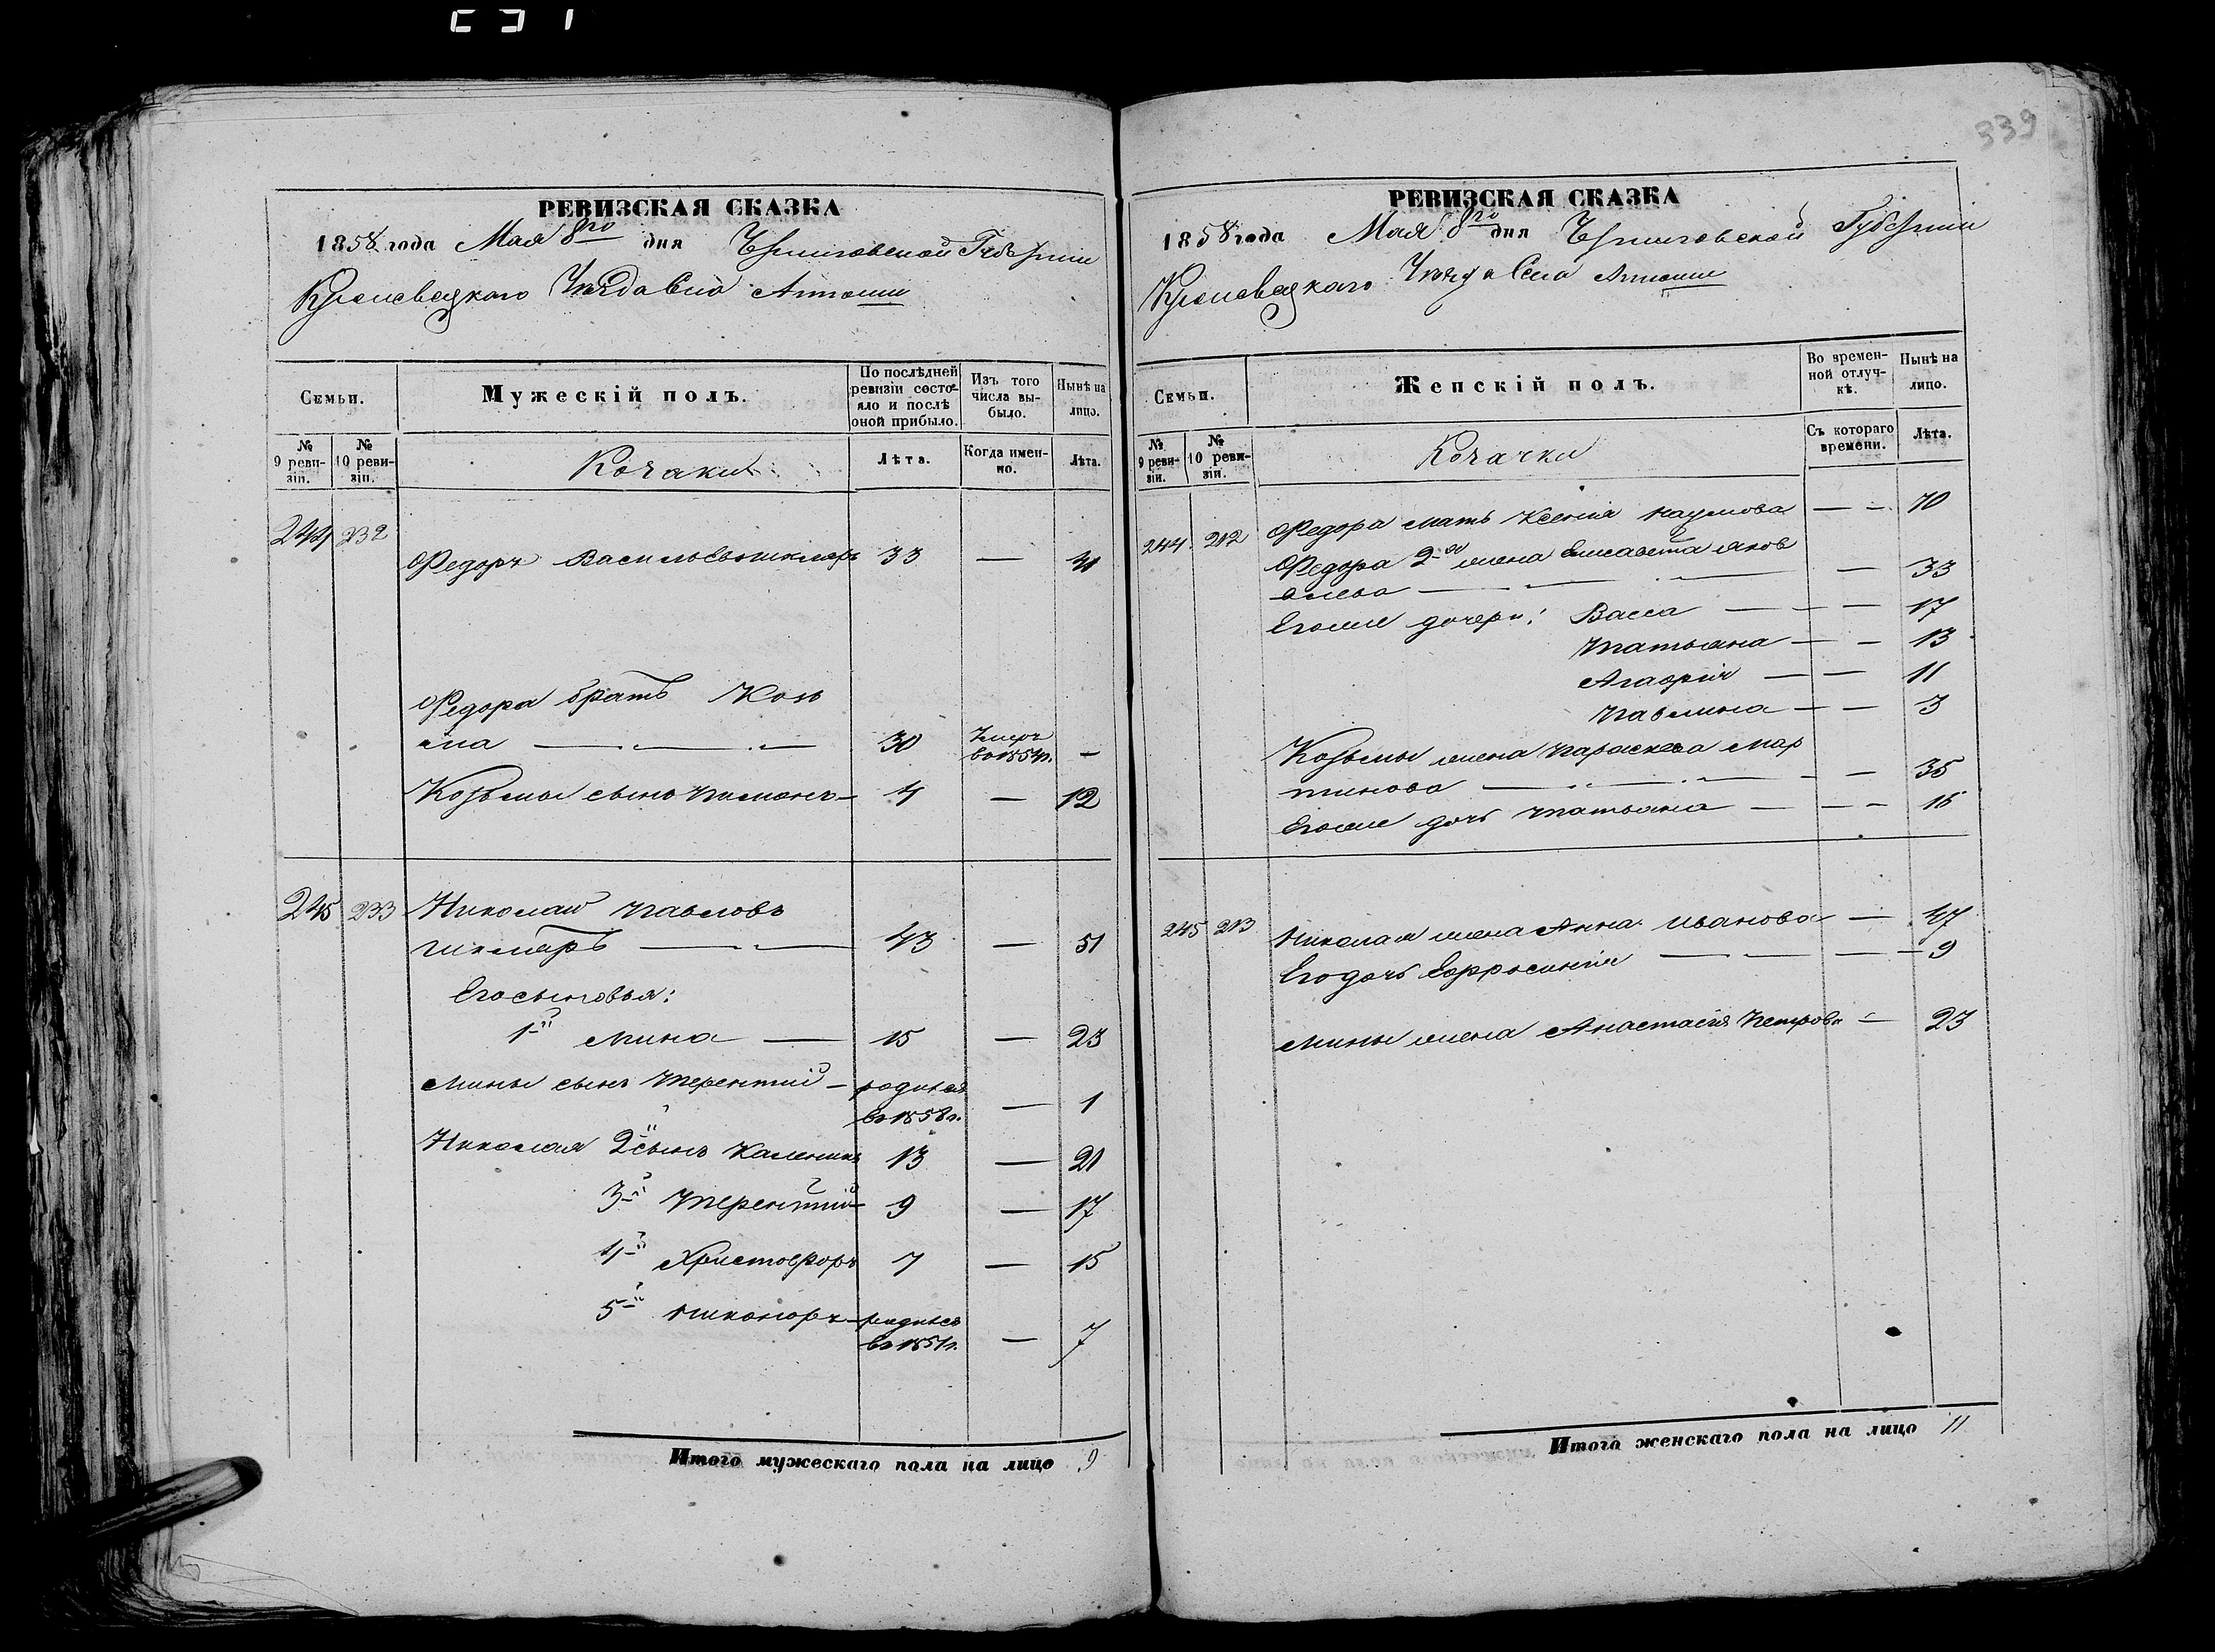 339
РЕВИЗСКАЯ СКАЗКА
1858 года Мая 8го дня Черниговской Губернии
Кролевецкаго Уѣзда Села
Семьи.
Мужескій полъ.
По послѣдней ревизіи состояло и послѣ оной прибыло.
Изъ того числа выбыло.
Нынѣ на лицо.
№ 9 ревизіи.
№ 10 ревизіи.
Козаки
Лѣта.
Когда именно.
Лѣта.
244 232
Федоръ Васильевъ шкляръ 33 — 41
Федора братъ Козь
ма — 30 Умеръ въ 1854г. —
Козьмы сынъ Пименъ — 4 — 12
245 233 Николай Павловъ
шкляръ — 43 — 51
Его сыновья:
1й Мина — 15 — 23
Мины сынъ Терентий — родился въ 1858г. — 1
Николая 2й сынъ Каленикъ 13 — 21
3й Терентий — 9 — 17
4й Христофоръ 7 — 15
5й Никоноръ — родился въ 1851г. — 7
Итого мужескаго пола на лицо 9
РЕВИЗСКАЯ СКАЗКА
1858 года Мая 8го дня Черниговской Губернии
Кролевецкаго Уѣзда Села
Семьи.
Женскій полъ.
Во временной отлучкѣ.
Нынѣ на лицо.
№ 9 ревизіи.
№ 10 ревизіи.
Козачки
Съ котораго времени.
Лѣта.
244 212 Федора мать Ксения Наумова — — 70
Федора 2-я жена Елисавета Яков
лева — — 33
Егоже дочери: Васса — — — 17
Татьяна — — 13
Агафия — — 11
Павлина — — 3
Козьмы жена Параскева Мар
тинова — — — 35
Егоже дочь Татьяна — — — 16
245 213 Николая жена Анна Иванова — 47
Его дочь Ефросиния — — — — 9
Мины жена Анастасия Петрова — 23
Итого женскаго пола на лицо 11